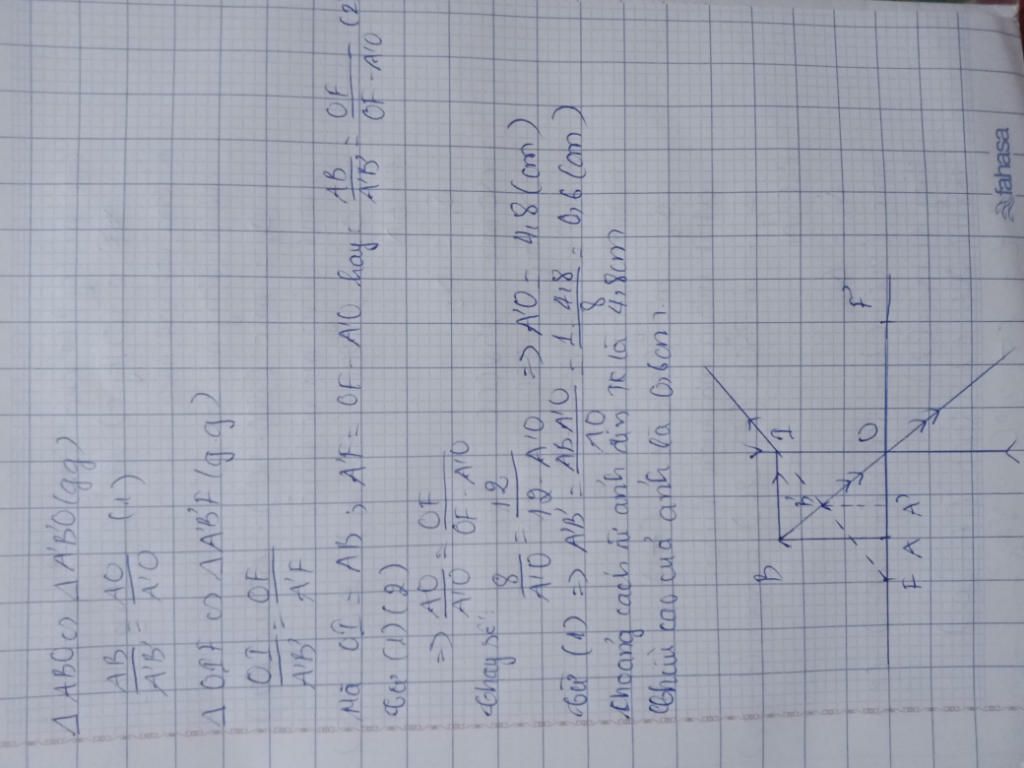 Δ ABO ∽ Δ A'B'O (g.g)
AB/A'B' = AO/A'O (1)
Δ OIF ∽ Δ A'B'F (g.g)
OI/A'B' = OF/A'F
Mà OI = AB, A'F = OF - A'O hay AB/A'B' = OF/OF - A'O (2
Từ (1) (2)
=> AO/A'O = OF/OF - A'O
Thay số:
8/A'O = 12/12 - A'O => A'O = 4,8 (cm)
Từ (1) => A'B' = AB.A'O/AO = 1.4,8/8 = 0,6 (cm)
Khoảng cách từ ảnh đến TK là 4,8cm
Chiều cao của ảnh là 0,6cm.
B
B'
I
F A A' O F'
fahasa